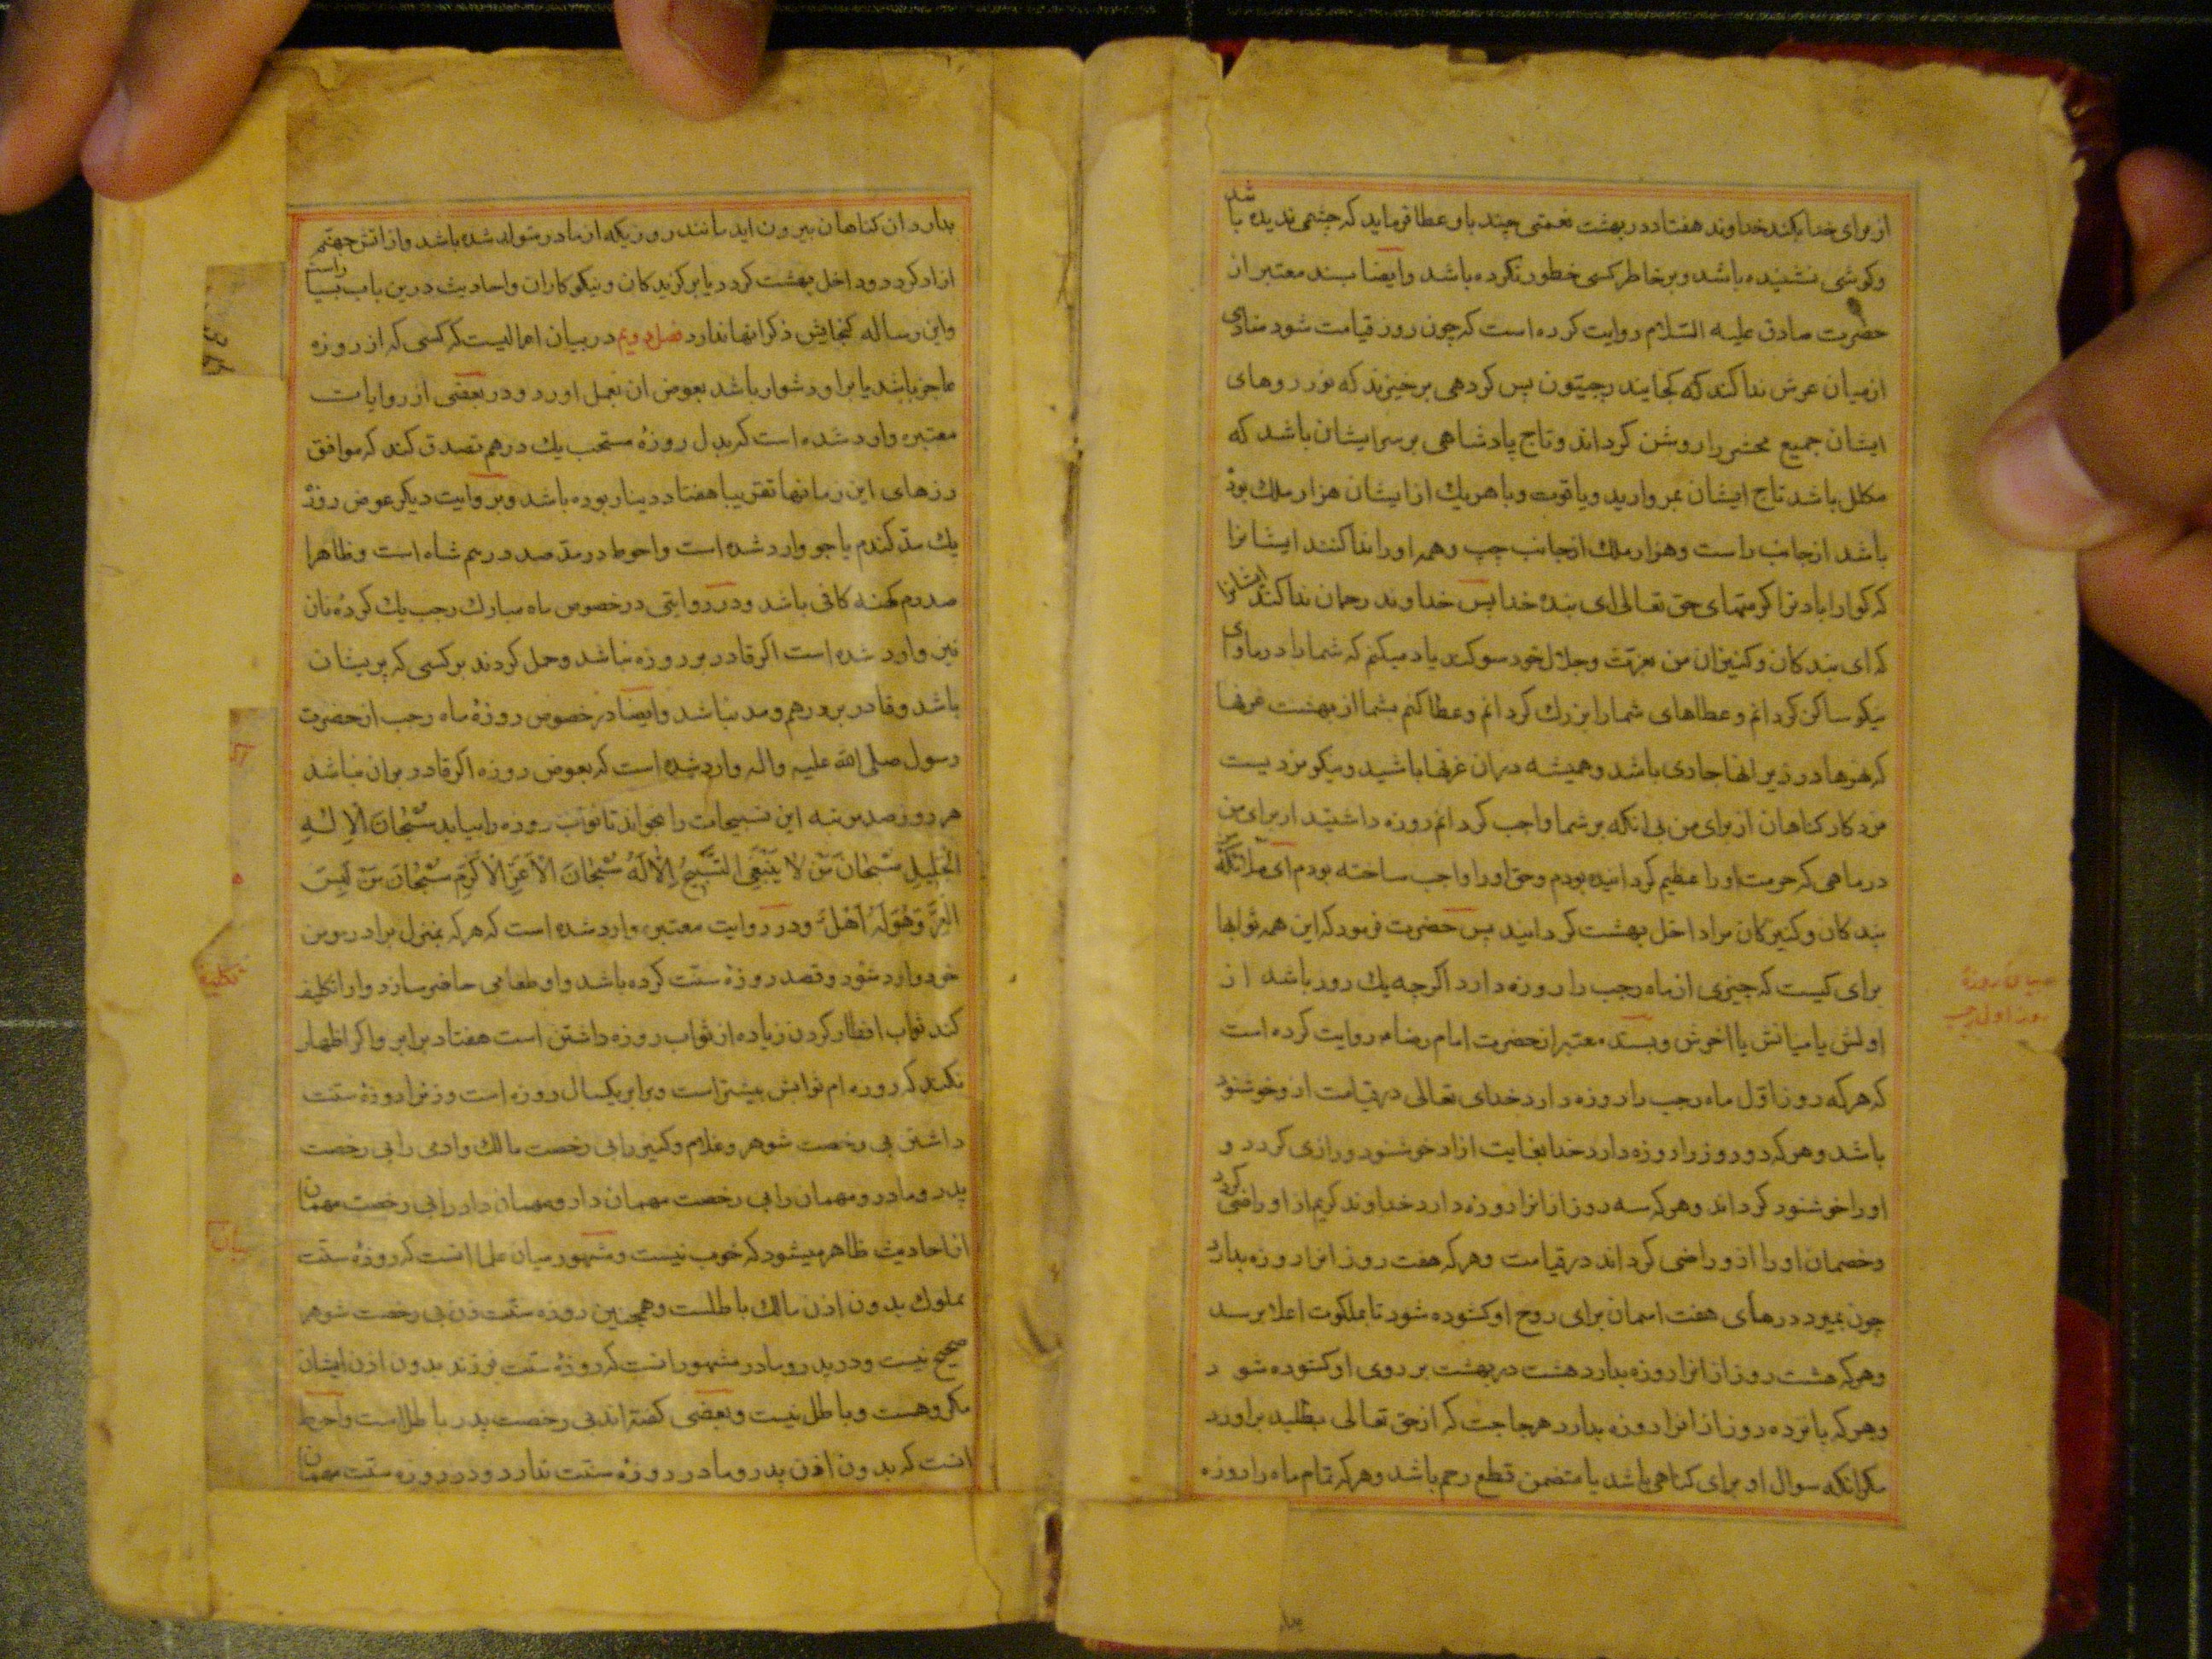 از برای خدا بکند خداوند هفتاد در بهشت نعمتی چند باو عطا فرماید که چشمی ندیده باشد
وکوشی نشنیده باشد و بر خاطر کسی خطور نکرده باشد وایضا بسند معتبر از
حضرت صادق علیه السلام روایت کرده است که چون روز قیامت شود منادی
از میان عرش ندا کند که کجایند رجبیون پس کروهی برخیزند که نور روهای
ایشان جمیع محشر را روشن کرداند وتاج پادشاهی بر سر ایشان باشد که
مکلل باشد تاج ایشان بمروارید ویاقوت وبا هر یك از ایشان هزار ملك بوده
باشد از جانب راست وهزار ملك از جانب چپ وهمه اورا ندا کنند ایشانرا
که کوارا باد ترا کرمتهای حق تعالی ای بنده خدا پس خداوند رحمان ندا کند ایشانرا
که ای بندکان وکنیزان من بعزت وجلال خود سوکند یاد میکنم که شمارا در ماوای
نیکو ساکن کردانم وعطاهای شمارا بزرك کردانم وعطا کنم بشما از بهشت غرفها
که نهرها در زیر انها جاری باشد وهمیشه در ان غرفها باشید ونیکو مزدیست
مزد کارکناهان از برای من بی انکه بر شما واجب کردانم روزه داشتید از برای من
در ماهی که حرمت اورا عظیم کردانیده بودم وحق اورا واجب ساخته بودم ای ملائکه
بندکان وکنیزکان مرا داخل بهشت کردانید پس حضرت فرمود که این همه ثوابها
برای کیست که چیزی از ماه رجب را روزه دارد اکرچه یك روز باشد از
اولش یا میانش یا اخرش وبسند معتبر از حضرت امام رضام روایت کرده است
که هر که روز اول ماه رجب را روزه دارد خدای تعالی در قیامت از و خوشنود
باشد وهر که دو روز را روزه دارد خدا بغایت از او خوشنود و راضی کردد و
اورا خوشنود کرداند وهر که سه روز از انرا روزه دارد خداوند کریم از او راضی کردد
وخصمان اورا ازو راضی کرداند در قیامت وهر که هفت روز انرا روزه بدارد
چون بمیرد درهای هفت اسمان برای روح او کشوده شود تا بملکوت اعلا برسد
وهر که هشت روز از انرا روزه بدارد هشت در بهشت بر روی او کشوده شود
وهر که پانزده روز از انرا روزه بدارد هر حاجت که از حق تعالی بطلبد براورد
مکر انکه سوال او برای کناهی باشد یا متضمن قطع رحم باشد وهر که تمام ماه را روزه
بیان روزهٔ
روز اول رجب
بدارد از کناهان بیرون اید مانند روزیکه از مادر متولد شده باشد واز اتش جهنم
ازاد کردد وداخل بهشت کردد با برکزیدکان ونیکوکاران واحادیث درین باب بسیار است
واین رساله کنجایش ذکر انها ندارد فصل دویم در بیان اعمالیست که کسی که از روزه
عاجز باشد یا بر او دشوار باشد بعوض ان بعمل اورد ودر بعضی از روایات
معتبره وارد شده است که بدل روزهٔ مستحب یك درهم تصدق کند که موافق
زرهای این زمانها تقریبا هفتاد دینار بوده باشد وبروایت دیکر عوض روزهٔ
یك مد کندم یا جو وارد شده است واحوط در مد صد درم شاه است وظاهرا
صد درم کهنه کافی باشد ودر روایتی در خصوص ماه مبارك رجب یك کردهٔ نان
نیز وارد شده است اکر قادر بر روزه نباشد وحمل کردند بر کسی که پریشان
باشد وقادر بر درهم ومد نباشد وایضا در خصوص روزهٔ ماه رجب از حضرت
رسول صلی الله علیه واله وارد شده است که بعوض روزه اکر قادر بر ان نباشد
هر روز صد مرتبه این تسبیحات را بخواند تا ثواب روزه را بیابد سُبْحَانَ الْاِلٰهِ
الْجَلِيلِ سُبْحَانَ مَنْ لَا يَنْبَغِي التَّسْبِيحُ اِلَّا لَهُ سُبْحَانَ الْاَعَزِّ الْاَكْرَمِ سُبْحَانَ مَنْ لَبِسَ
الْعِزَّ وَهُوَ لَهُ اَهْلٌ ودر روایت معتبره وارد شده است که هر که بمنزل برادر مومن
خود وارد شود وقصد روزهٔ سنت کرده باشد واو طعامی حاضر سازد واورا تکلیف
کند ثواب افطار کردن زیاده از ثواب روزه داشتن است هفتاد برابر واکر اظهار
نکند که روزه ام ثوابش بیشتر است وبرابر یکسال روزه است وزنرا روزهٔ سنت
داشتن بی رخصت شوهر وغلام وکنیز را بی رخصت مالك وادمی را بی رخصت
پدر ومادر ومهمان را بی رخصت مهمان دار ومهمان دار را بی رخصت مهمان
از احادیث ظاهر میشود که خوب نیست ومشهور میان علما انست که روزهٔ سنت
مملوك بدون اذن مالك باطلست وهمچنین روزه سنت زن بی رخصت شوهر
صحیح نیست ودر پدر ومادر مشهور انست که روزهٔ سنت فرزند بدون اذن ایشان
مکروهست وباطل نیست وبعضی کفته اند بی رخصت پدر باطل است واحوط
انست که بدون اذن پدر ومادر روزه سنت ندارد ودر روزه سنت مهمان